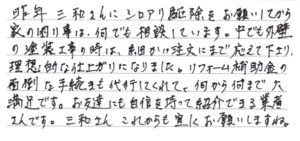 昨年三和さんにシロアリ駆除をお願いしてから
家の困り事は、何でも相談しています。中でも外壁
の塗装工事の時は、細かい注文にまで応えて下さり、
理想的な仕上がりになりました。リフォーム補助金の
面倒な手続きも代行してくれて、何から何まで大
満足です。お友達にも自信を持って紹介できる業者
さんです。三和さんこれからも宜しくお願いしますね。